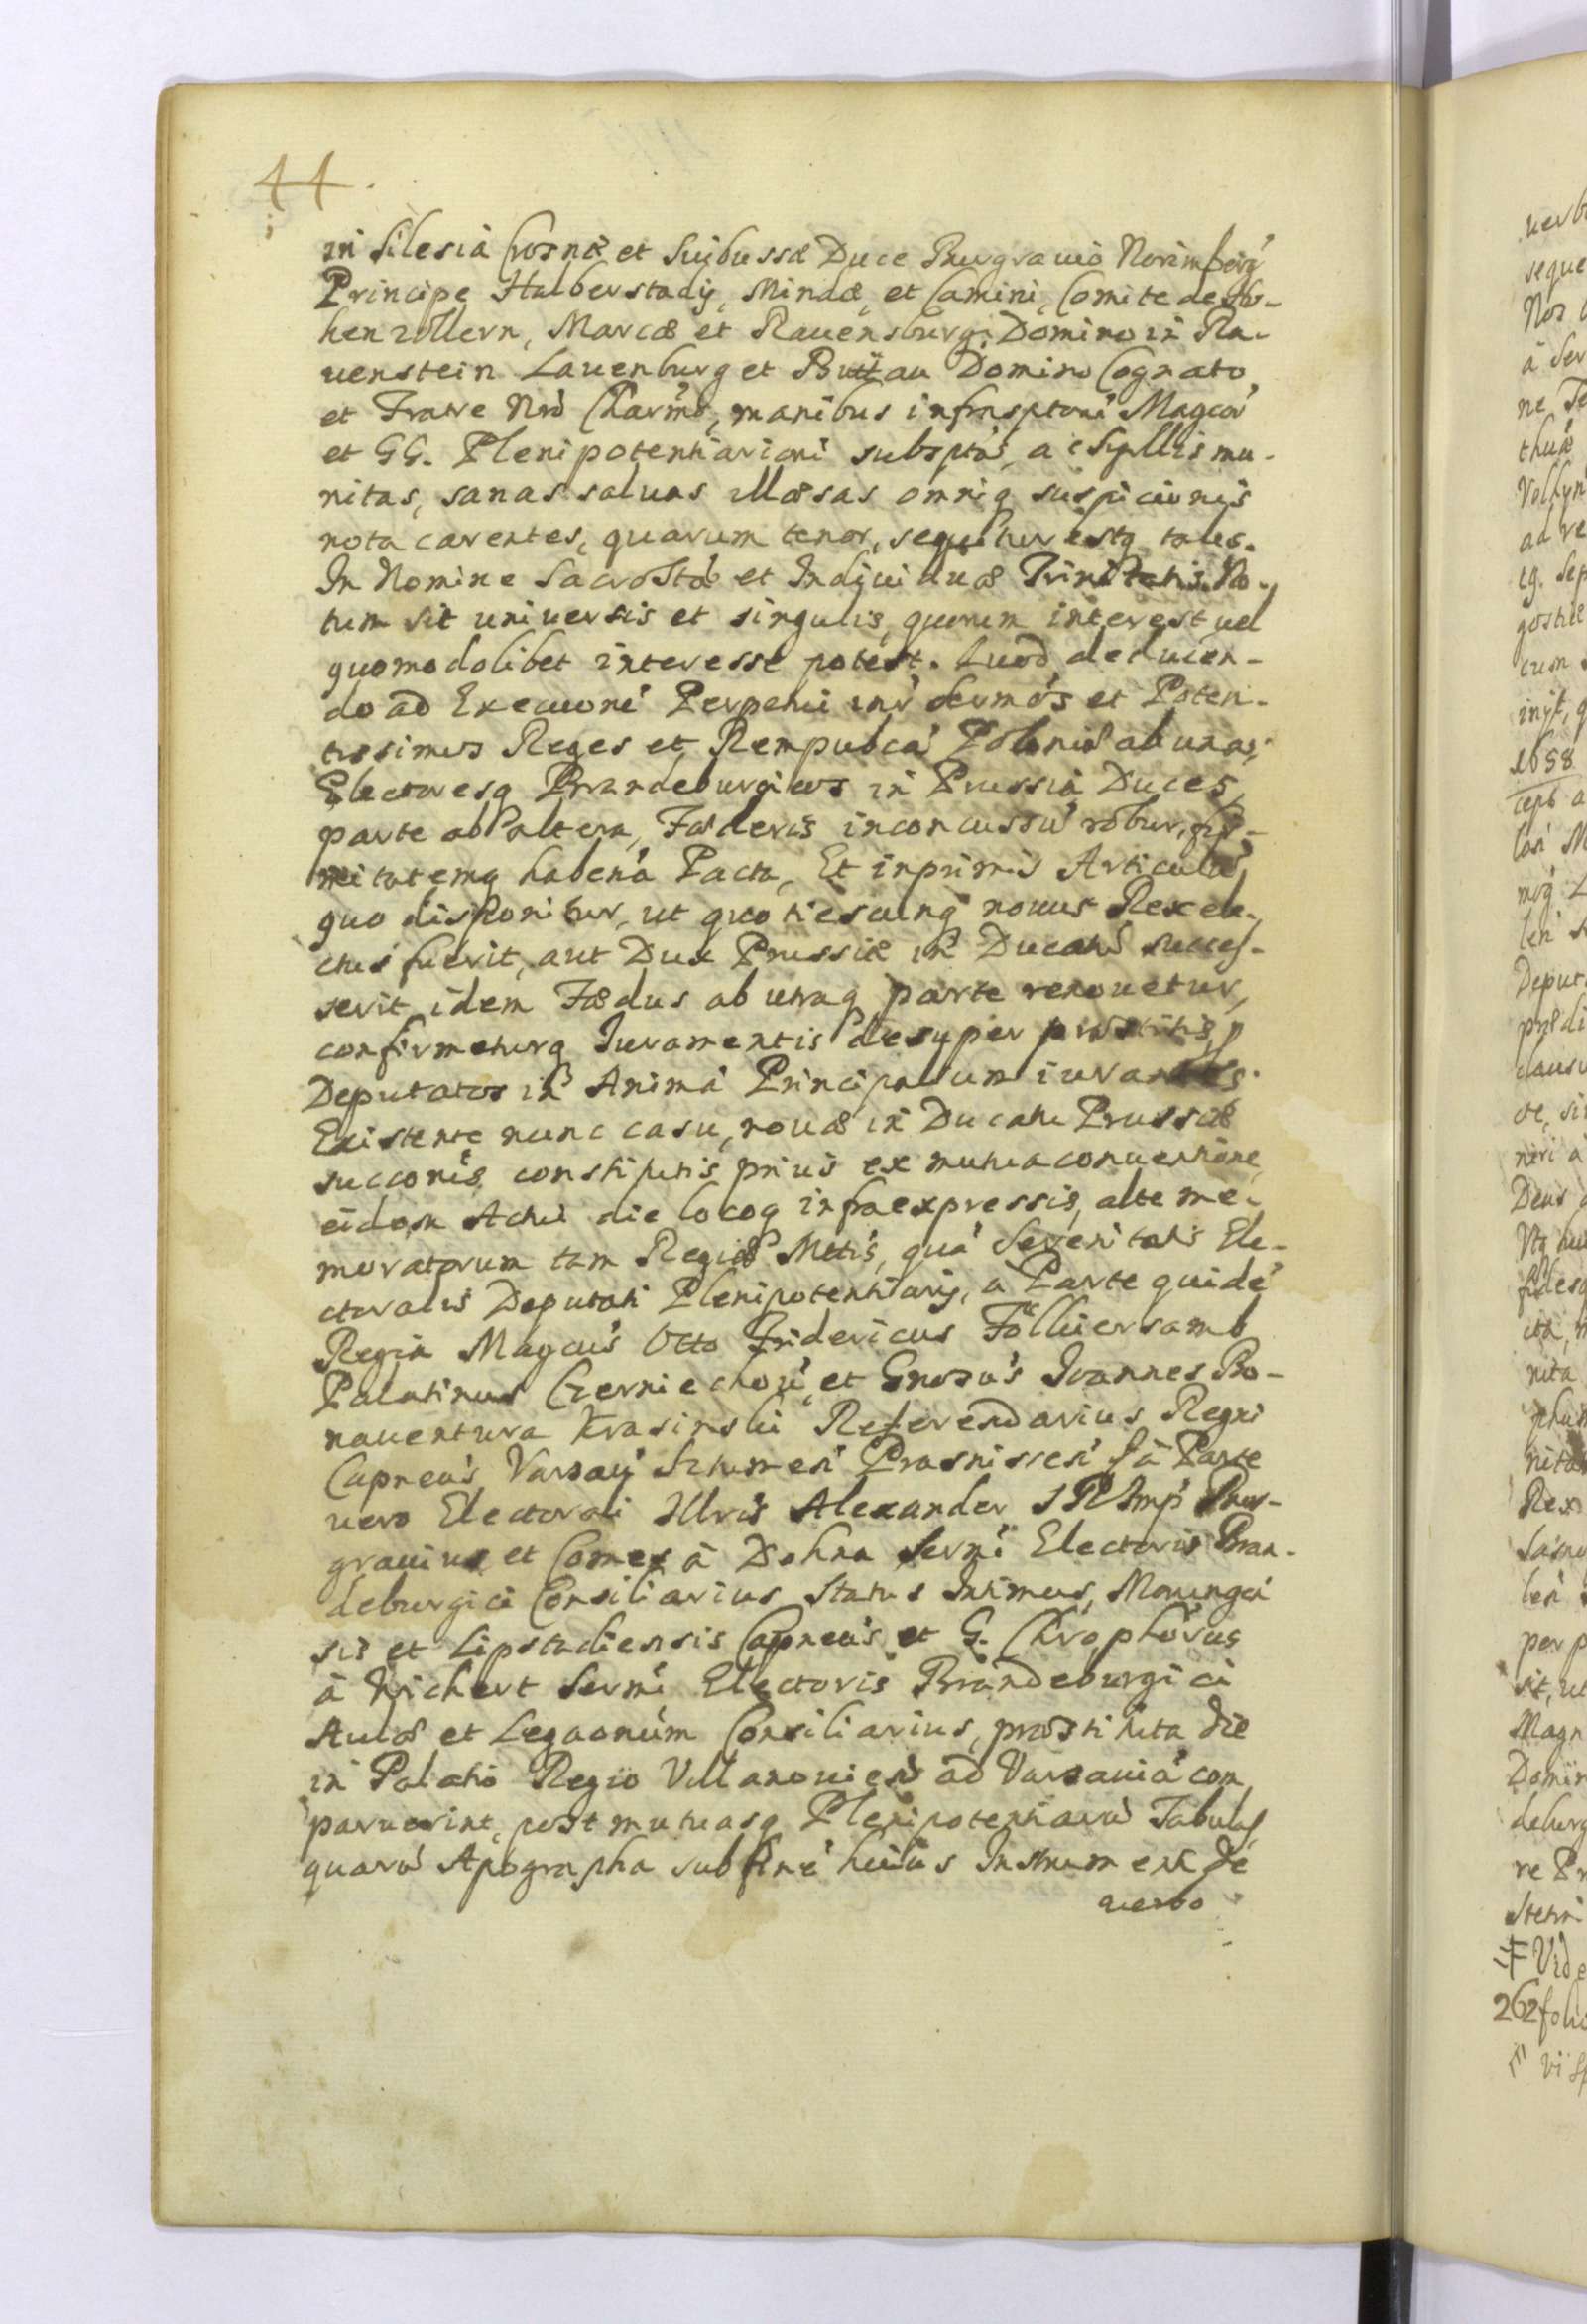 44.
in Silesia Crosnæ et Suibussæ Duce Burgrauio Norimberg
Principe Halberstadij, Mindæ, et Camini, Comite de Ho-
henzollern, Marcæ et Rauensburgi Domino in Ra-
uenstein Lauenburg et Buttau Domino Cognato
et Fratre Nro Charmo, manibus infrasptoru Magcoru
et GG. Plenipotentiarioru subsptas, ac Sygillis mu-
nitas, sanas saluas illæsas omniq suspicionis
nota carentes, quarum tenor, sequitur estq talis.
In Nomine Sacrostæ et Indiuiduæ Trinitatis. No-
tum sit uniuersis et singulis, quorum interest uel
quomodolibet interesse potest. Quod deducen-
do ad Execuone Perpetui inr Sermos et Poten-
tissimos Reges et Rempubca Poloniæ ab una,
Electoresq Brandeburgicos in Prussia Duces,
parte ab altera, Fæderis inconcussu robur, fir-
mitatemq habena Pacta, Et inprimis Articulu,
quo disponitur, ut quotiescunq nouus Rex ele-
ctus fuerit, aut Dux Prussiæ in Ducatu succes-
serit idem Fædus ab utraq parte renouetur,
confirmeturq Iuramentis desuper præstitis p
Deputatos in Anima Principalium iurantes.
Existente nunc casu, nouæ in Ducatu Prussiæ
succonis, constitutis prius ex mutua conuentione,
eidem Actui die locoq infraexpressis, alte me-
moratorum tam Regiæ Mttis, qua Serenitatis Ele-
ctoralis Deputati Plenipotentiarij, a Parte quide
Regia Magcus Otto Fridericus Fölkiersamb
Palatinus Czerniechou, et Gnosus Ioannes Bo-
nauentura Krasinski Referendarius Regni
Capneus Varsau Sztumen Prasnissen, à Parte
uero Electorali Illris Alexander SRImp Bur-
grauius et Comes à Dohna Sermi Electoris Bran-
deburgici Consiliarius Status Intimus, Morungen
sis et Lipstadiensis Capneus et G. Chrophorus
à Wichert Sermi Electoris Brandeburgici
Aulæ et Legaonum Consiliarius, præstituta die
in Palatio Regio Villanouien ad Varsauia com
paruerint, post mutuasq Plenipotentiaru Tabulas,
quaru Apographa sub fine huius Instrumenti de
uerbo